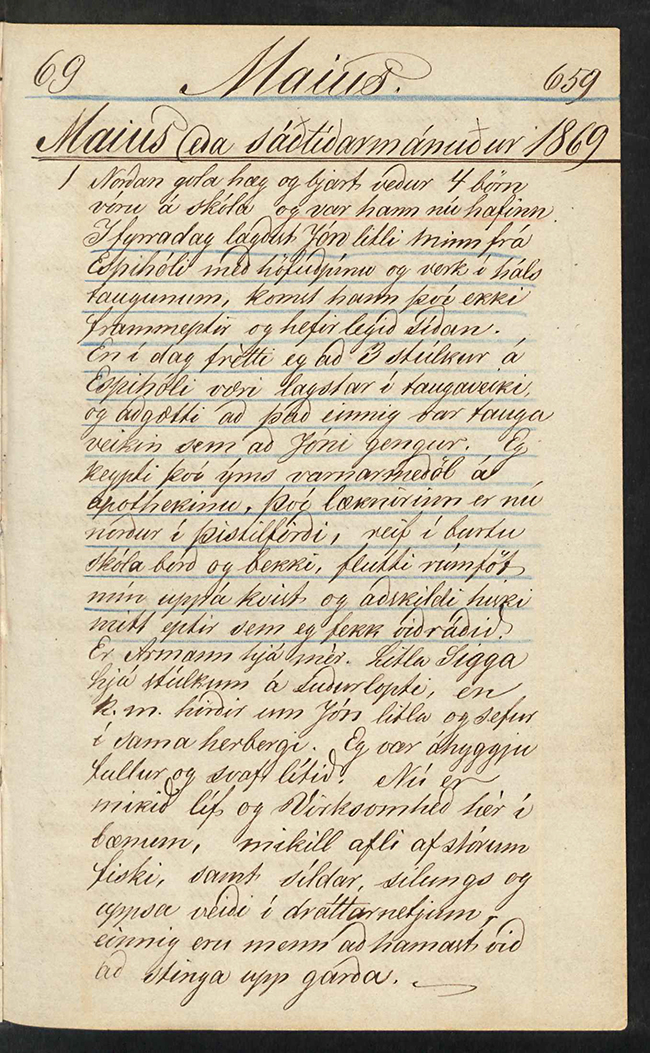 69 Maius. 659
Maius eða sáðtíðarmánuður 1869
1 Norðan gola hæg og bjart veður 4 börn
voru á skóla og var hann nú hafinn
Ifyrradag lagðist Jón litli minn frá
Espihóli með höfuðpínu og verk í háls
taugunum, komst hann þó ekki
frammeptir og hefir legið síðan.
En í dag frétti eg að 3 stúlkur á
Espihóli væri lagstar í taugaveiki,
og aðgætti að það einnig var tauga
veikin sem að Jóni gengur. Eg
keypti þó ýms varnarmeðöl á
apothekinu, þó læknirinn er nú
norður í þistilfirði, reif í burtu
skóla borð og bekki, flutti rúmföt
mín uppá kvist og aðskildi hiski
mitt eptir sem eg fekk við ráðið.
Er Armann hjá mér. Litla Sigga
hjá stúlkum á Suðurlopti, en
k. m. hirðir um Jón litla og sefur
í sama herbergi. Eg var áhyggju
fullur og svaf lítið. Nú er
mikið líf og Virksomhed hér í
bænum, mikill afli af stórum
fiski, samt síldar, silungs og
uppsa veiði í dráttarnetjum,
einnig eru menn að hamast við
að stinga upp garða.